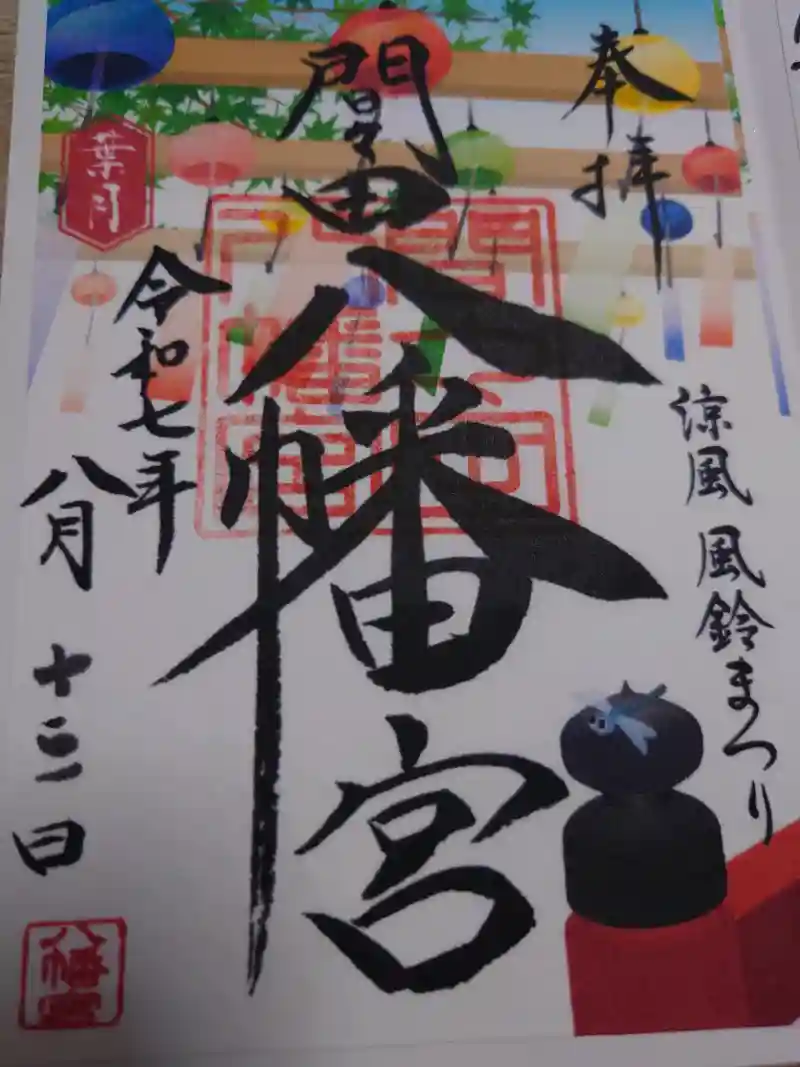 奉拝
涼風 風鈴まつり
間々田八幡宮
葉月
令和七年
八月十三日
八幡宮